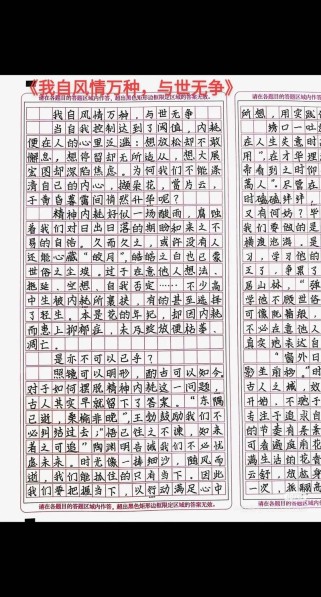 《我自风情万种，与世无争》
请在各题目的答题区域内作答，超出黑色矩形边框限定区域的答案无效。
我自风情万种，与世无争
当自我控制达到了阈值，内耗
便在人的心里泛滥：想放松却不敢
懈怠，想停留却无所适从，想大展
宏图却深陷焦虑。为何我们不能涤
清自己的内心，撷朵花，赏片云，
于青昏暮霭间悄然升华呢？
精神内耗好似一场酸雨，腐蚀
着我们对日出日落的期盼如来之不
易的自信，久而久之，或许没有人
还能心藏“皎月”，皓皓之白也已蒙
世俗之尘埃。过于在意他人想法、
拖延、空想、自我否定……不少高
中生被内耗所裹挟，有的甚至选择
了轻生。本是花的年纪，却因内耗
而患上抑郁症，未及绽放便枯萎、
凋亡。
是亦不可以已乎？
照镜可以明形，酌古可以知今。
对于如何摆脱精神内耗这一问题，
古人其实早就留下了答案。“东隅
已逝，桑榆非晚”，王勃鼓励我们不
必纠结过去；“悟已往之不谏，知来
者之可追”陶渊明告诫我们不必忧
虑未来。时光像一捧细沙，随风而
逝，我们能抓住的只有当下。因此
我们要把握当下，以行动满足心中
请在各题目的答题区域内作答，超出黑色矩形边框限定区域的答案无效。
请在各题目的答题区域内作答
所想，用实践
绣口一吐
在人生失意时
用”，在才华
帝看到之时仰
高人”。尽管在
时磕磕绊绊，
又有何妨？毕
我们要做的是
横渡沧海。是
习，学习他的
王了，争累了
易山林，“弹
学他不顾世俗
可像阮籍般，
不必在意他人
直实地表达自
“窗外日
影坐前移。”时
古人之城，效
开始，不驰于
专注于追求自
的节奏有条紊
可看遍庭前花
满生活的花香
云舒，放松身
一次，抿翻高
请在各题目的答题区域内作答